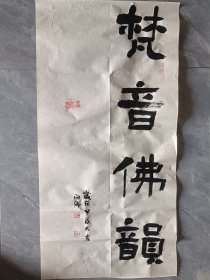 梵音佛韻
歲在甲辰大吉